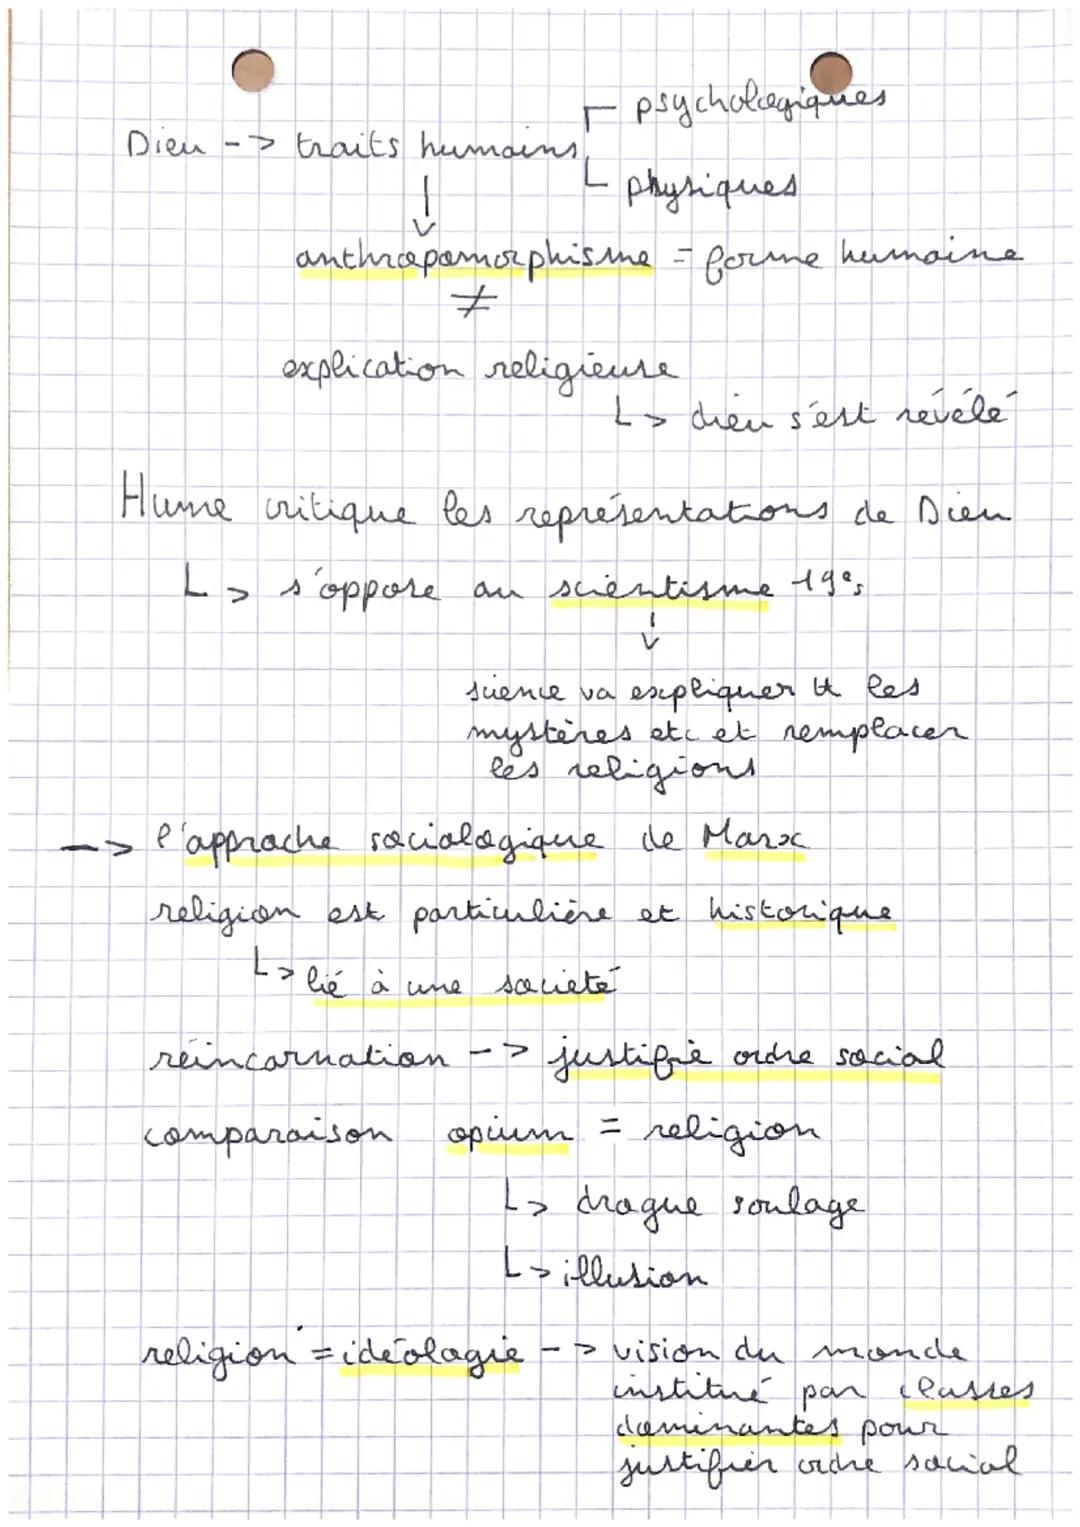 psychologiques
Dieu --> traits humains
physiques
anthropomorphisme = forme humaine
≠
explication religieuse
L> dieu s'est révélé
Hume critique les représentations de Dieu
L> s'oppose au scientisme 19es
science va expliquer tt les
mystères etc et remplacer
les religions
--> l'approche sociologique de Marx
religion est particulière et historique
L> lié à une société
réincarnation --> justifie ordre social
comparaison opium = religion
L> drogue soulage
L> illusion
religion = idéologie --> vision du monde
institué par classes
dominantes pour
justifier ordre social